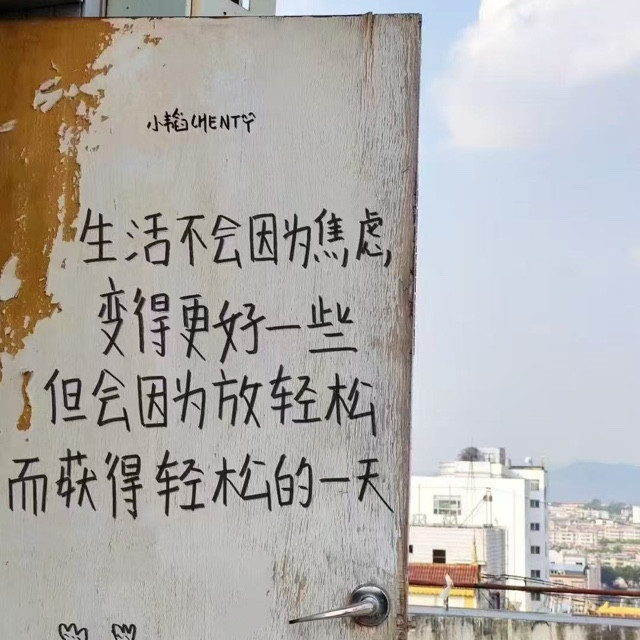 小韬CHENTY
生活不会因为焦虑
变得更好一些
但会因为放轻松
而获得轻松的一天